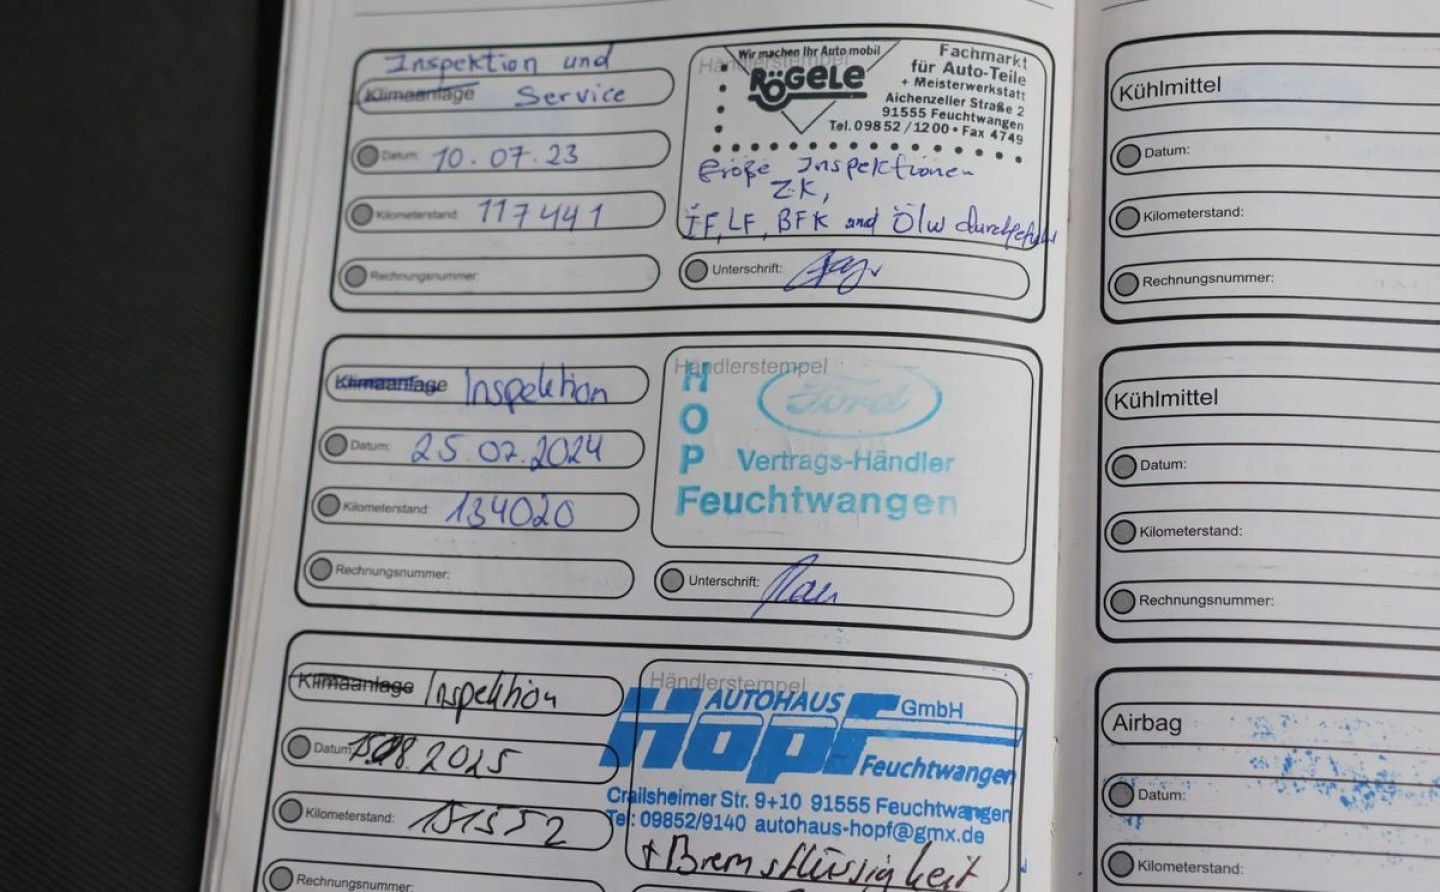 Inspektion und
Klimaanlage Service
Datum: 10.07.23
Kilometerstand: 117441
Rechnungsnummer:
Händlerstempel
Wir machen Ihr Auto mobil
RÖGELE
Fachmarkt
für Auto-Teile
+ Meisterwerkstatt
Aichenzeller Straße 2
91555 Feuchtwangen
Tel. 09852/1200 • Fax 4749
Große Inspektionen
ZK,
IF, LF, BFK und ÖLW durchgeführt
Unterschrift:
Klimaanlage Inspektion
Datum: 25.07.2024
Kilometerstand: 134020
Rechnungsnummer:
Händlerstempel
HOPF
Ford
Vertrags-Händler
Feuchtwangen
Unterschrift:
Klimaanlage Inspektion
Datum: 08.2025
Kilometerstand: 151552
Rechnungsnummer:
Händlerstempel
AUTOHAUS
Hopf GmbH
Feuchtwangen
Crailsheimer Str. 9+10 91555 Feuchtwangen
Tel: 09852/9140 autohaus-hopf@gmx.de
+Bremsflüssigkeit
Kühlmittel
Datum:
Kilometerstand:
Rechnungsnummer:
Kühlmittel
Datum:
Kilometerstand:
Rechnungsnummer:
Airbag
Datum:
Kilometerstand: